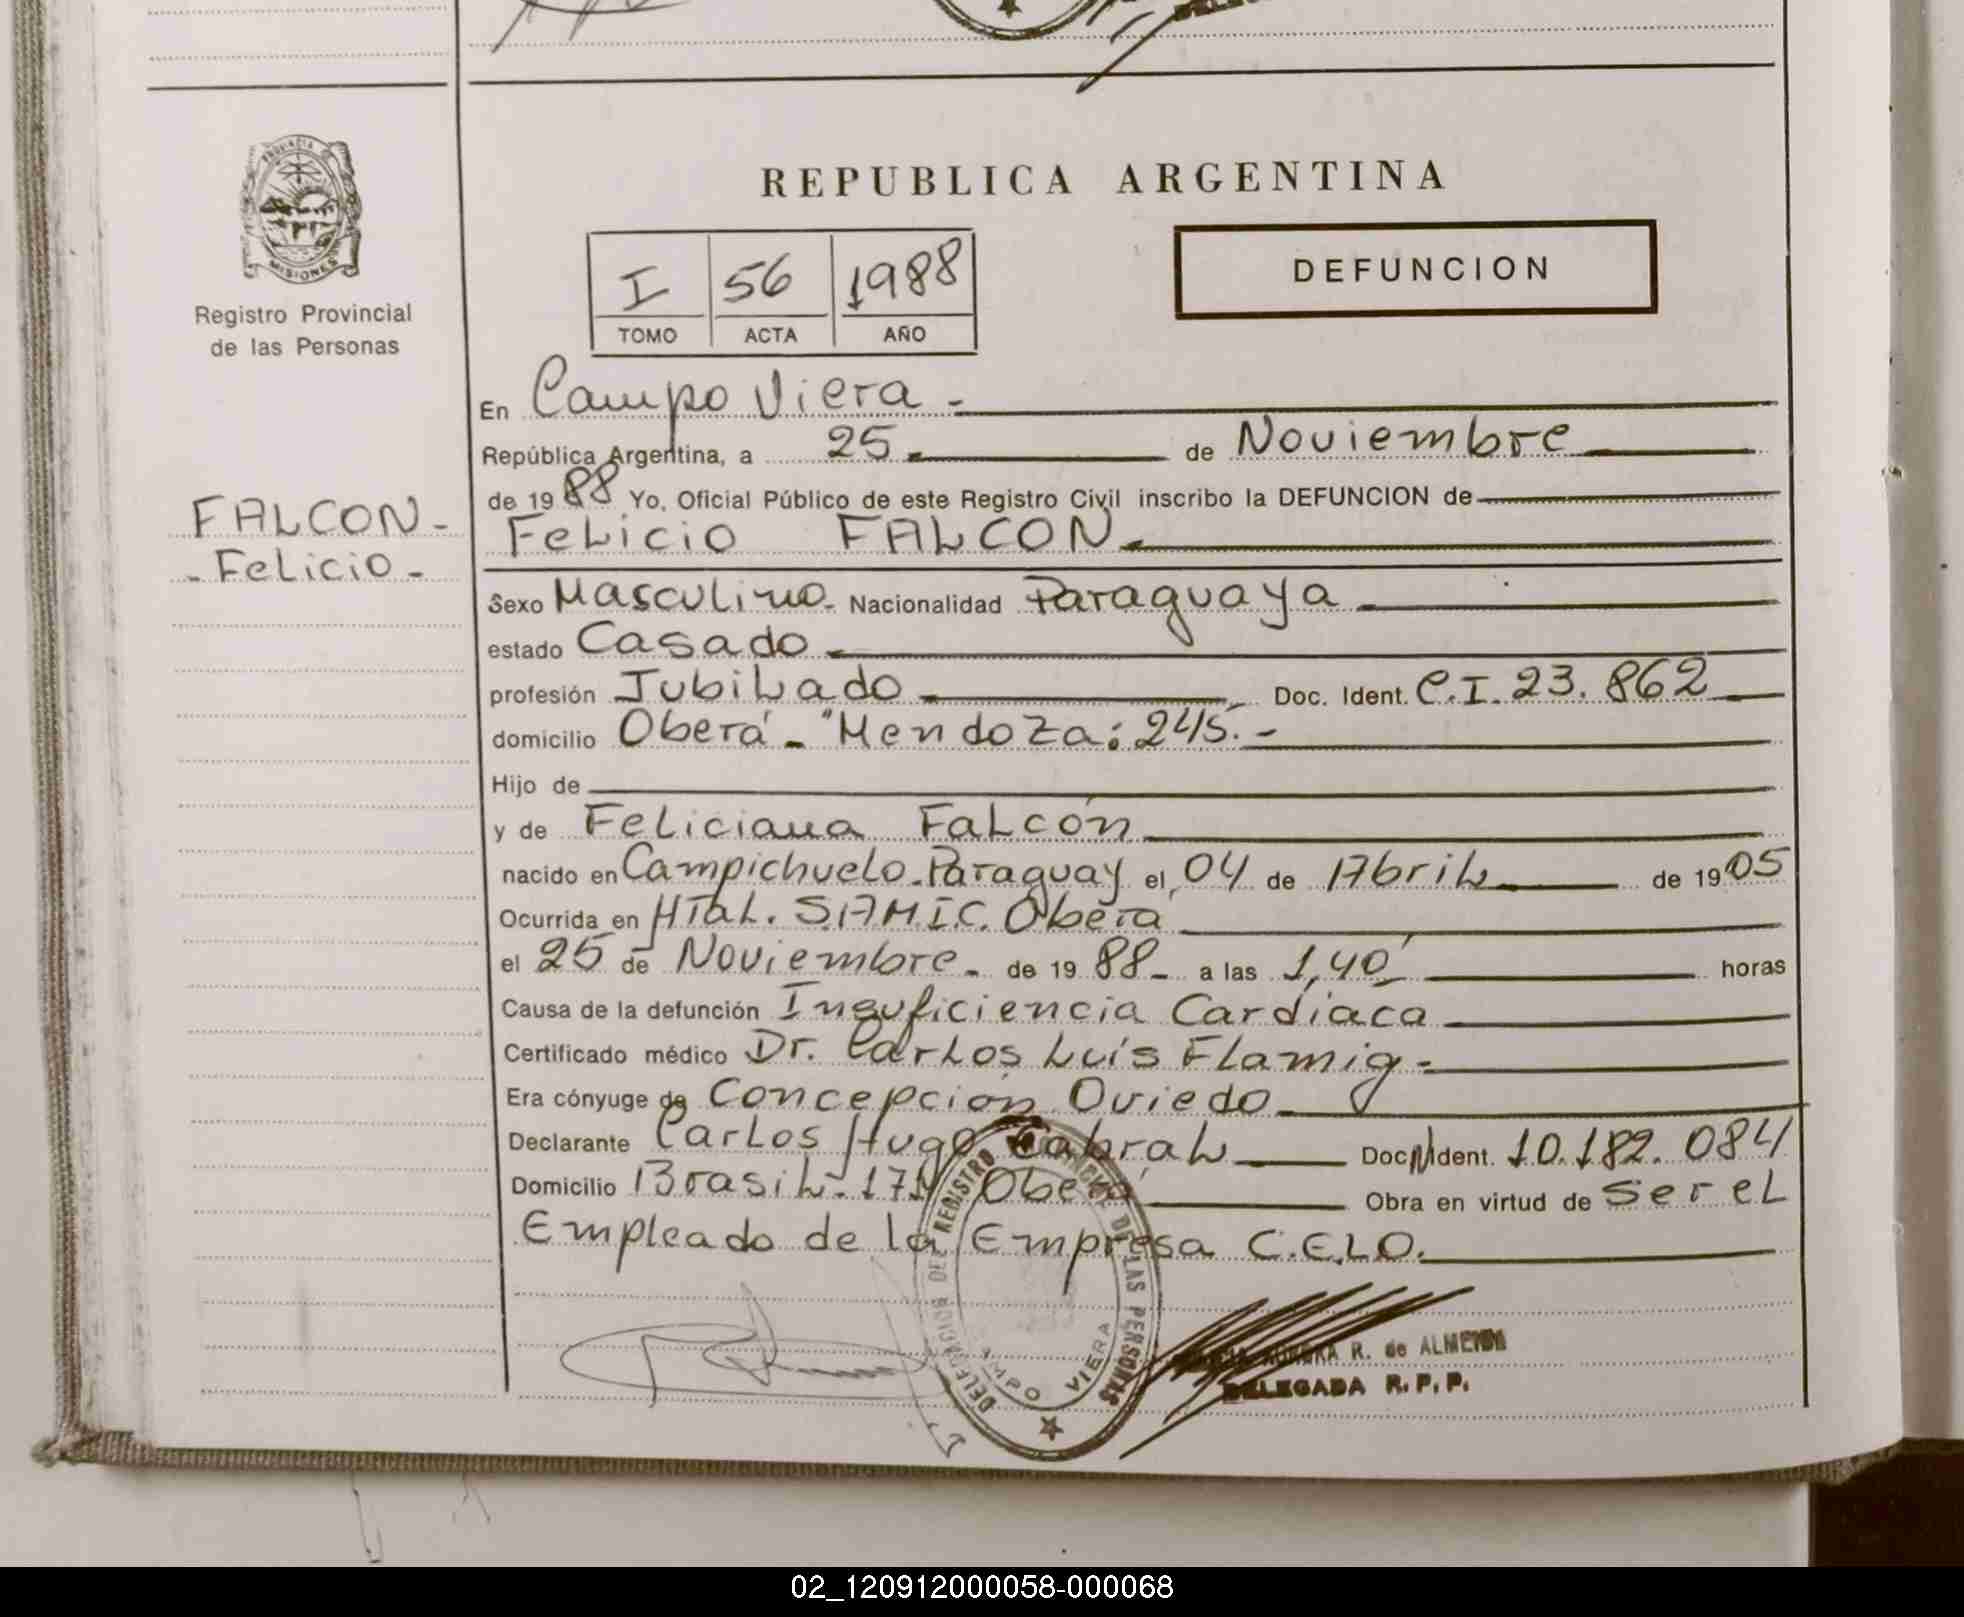 PROVINCIA DE
MISIONES
Registro Provincial
de las Personas
FALCON-
-Felicio-
REPUBLICA ARGENTINA
I 56 1988
TOMO ACTA AÑO
DEFUNCION
En Campo Viera -
República Argentina, a 25 de Noviembre
de 1988 Yo, Oficial Público de este Registro Civil inscribo la DEFUNCION de
Felicio FALCON.
Sexo Masculino. Nacionalidad Paraguaya
estado Casado
profesión Jubilado Doc. Ident. C.I. 23.862
domicilio Oberá - "Mendoza: 245.-
Hijo de
y de Feliciana Falcón
nacido en Campichuelo-Paraguay el 04 de Abril de 1905
Ocurrida en Htal. S.A.M.I.C. Oberá
el 25 de Noviembre - de 1988 - a las 1,40 horas
Causa de la defunción Insuficiencia Cardíaca
Certificado médico Dr. Carlos Luís Flamig-
Era cónyuge de Concepción Oviedo
Declarante Carlos Hugo Cabral Doc. Ident. 10.182.084
Domicilio Brasil- Oberá Obra en virtud de ser el
Empleado de la Empresa C.E.L.O.
DELEGACION DEL REGISTRO DE LAS PERSONAS
CAMPO VIERA
R. de ALMEIDA
DELEGADA R.P.P.
02_120912000058-000068